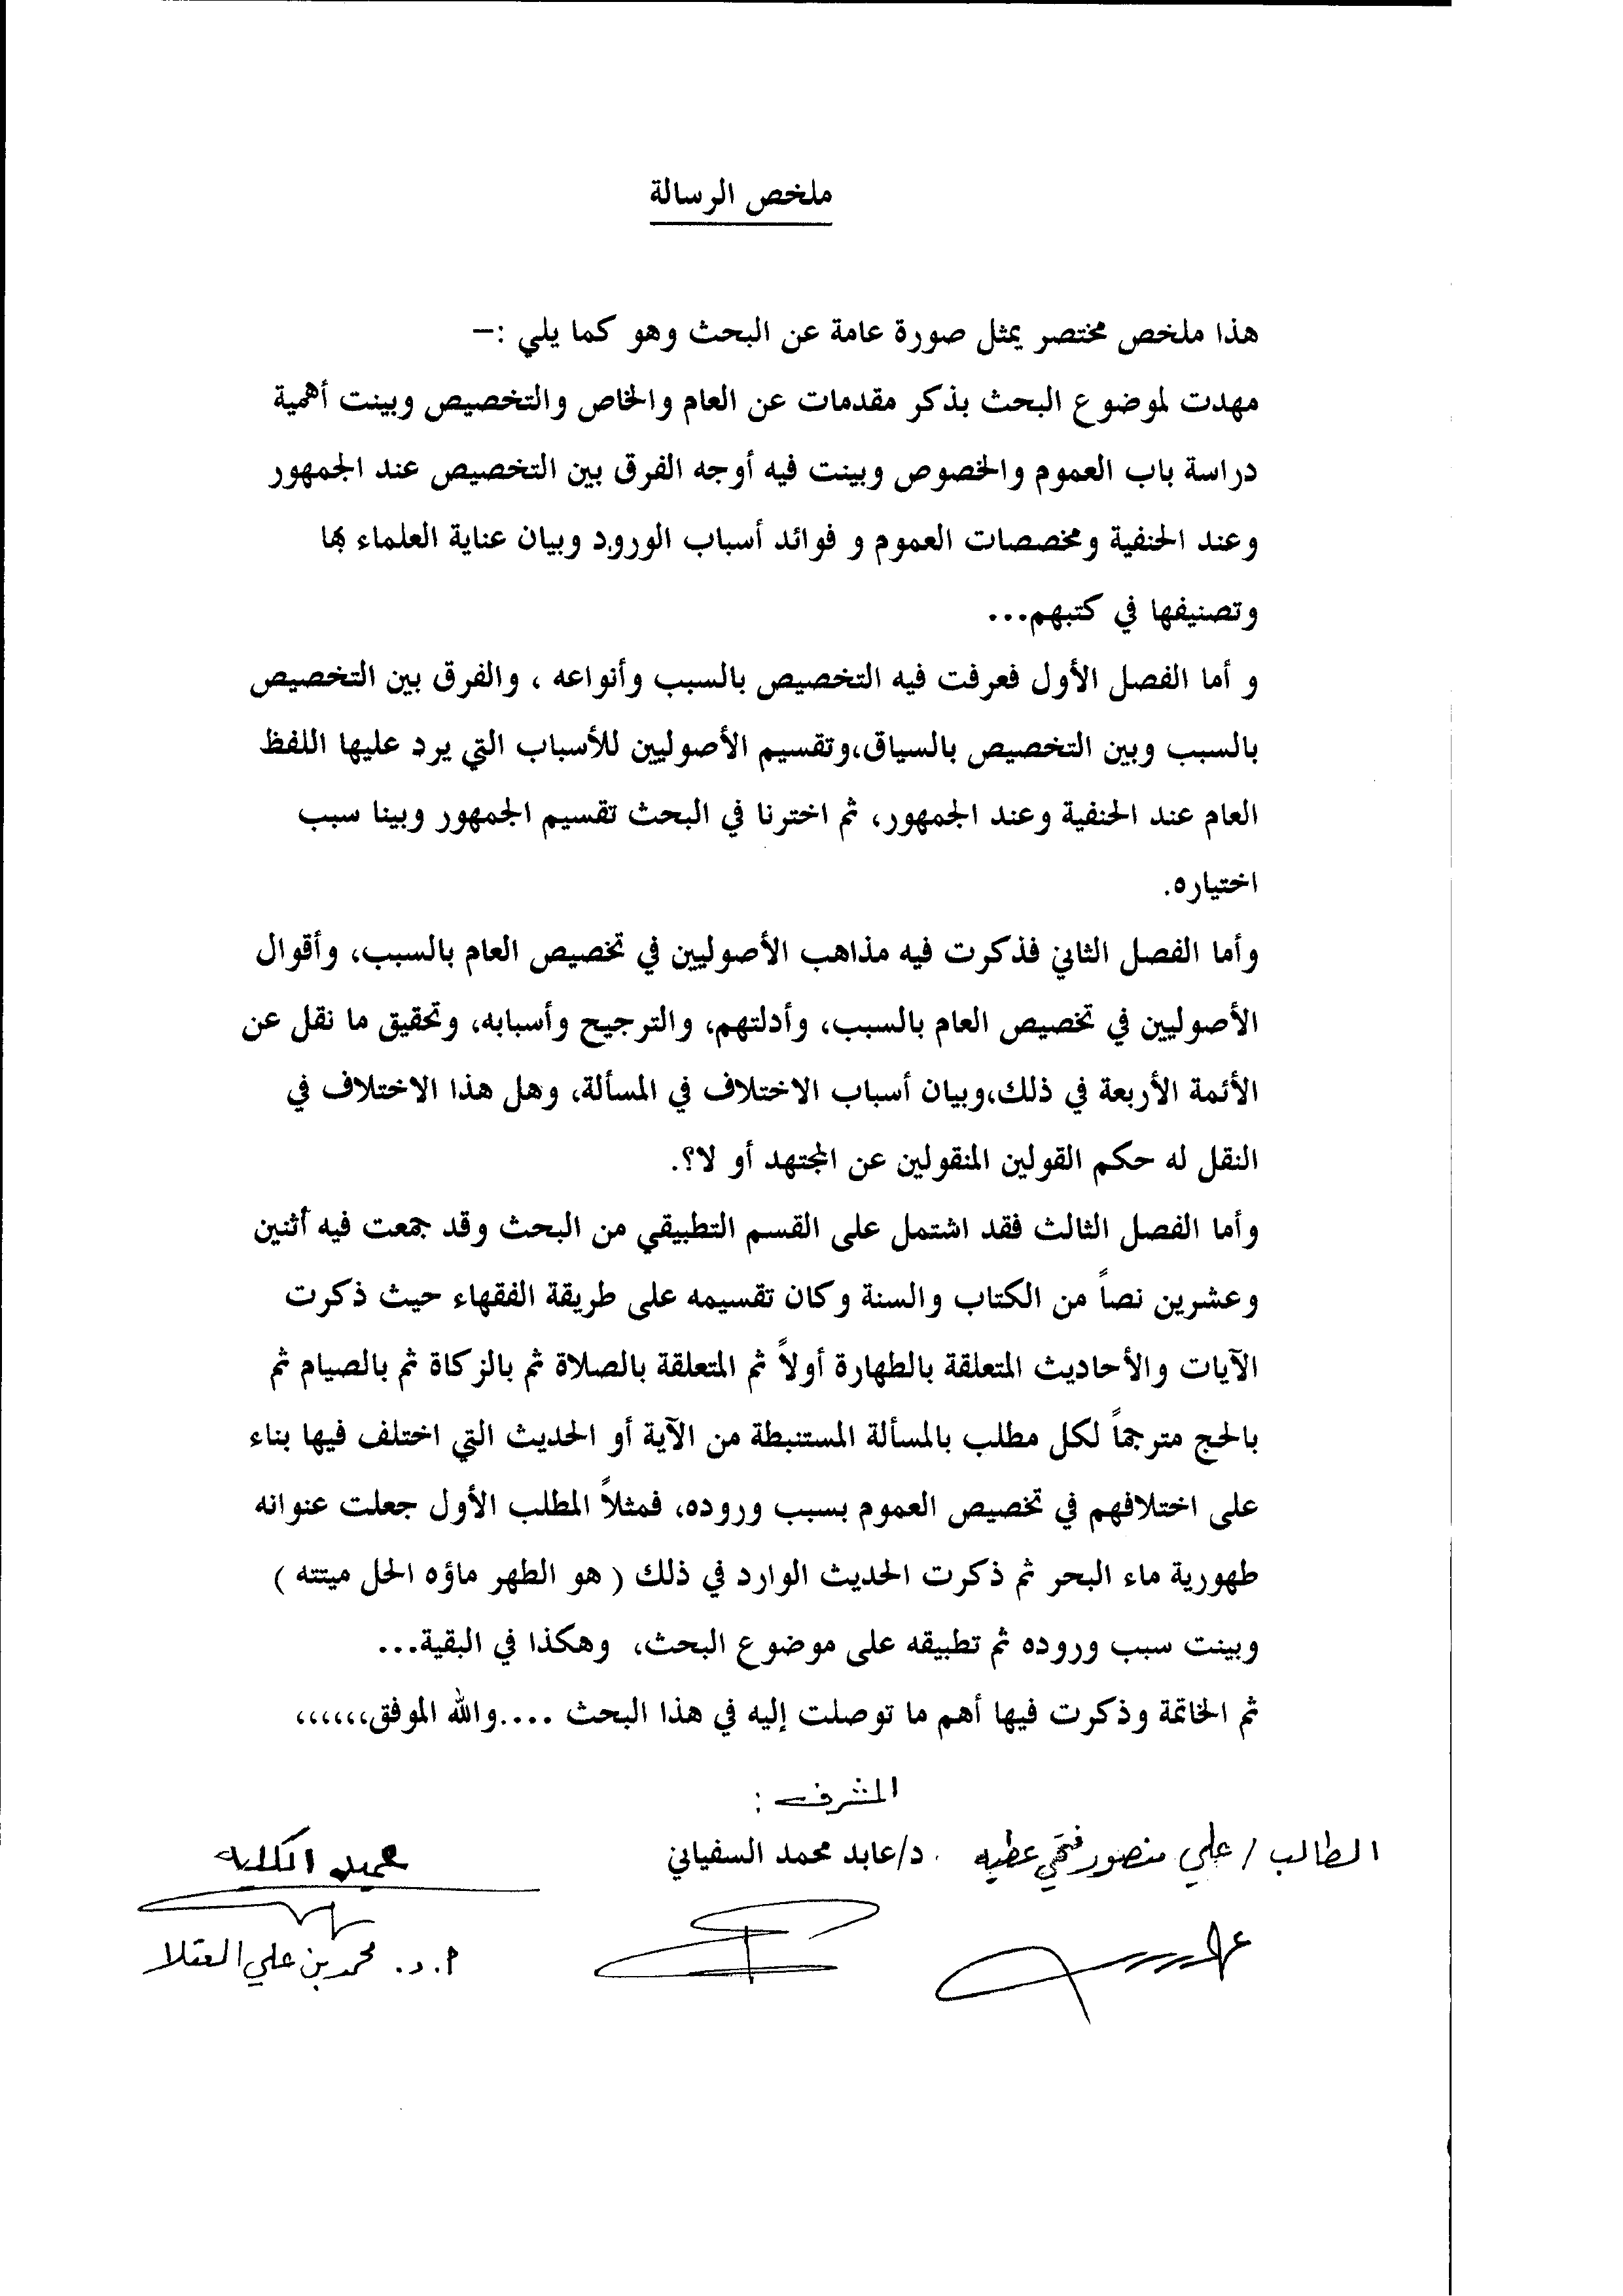 ملخص الرسالة
هذا ملخص مختصر يمثل صورة عامة عن البحث وهو كما يلي :–
مهدت لموضوع البحث بذكر مقدمات عن العام والخاص والتخصيص وبينت أهمية
دراسة باب العموم والخصوص وبينت فيه أوجه الفرق بين التخصيص عند الجمهور
وعند الحنفية ومخصصات العموم و فوائد أسباب الورود وبيان عناية العلماء بها
وتصنيفها في كتبهم...
و أما الفصل الأول فعرفت فيه التخصيص بالسبب وأنواعه ، والفرق بين التخصيص
بالسبب وبين التخصيص بالسياق،وتقسيم الأصوليين للأسباب التي يرد عليها اللفظ
العام عند الحنفية وعند الجمهور، ثم اخترنا في البحث تقسيم الجمهور وبينا سبب
اختياره.
وأما الفصل الثاني فذكرت فيه مذاهب الأصوليين في تخصيص العام بالسبب، وأقوال
الأصوليين في تخصيص العام بالسبب، وأدلتهم، والترجيح وأسبابه، وتحقيق ما نقل عن
الأئمة الأربعة في ذلك،وبيان أسباب الاختلاف في المسألة، وهل هذا الاختلاف في
النقل له حكم القولين المنقولين عن المجتهد أو لا؟.
وأما الفصل الثالث فقد اشتمل على القسم التطبيقي من البحث وقد جمعت فيه أثنين
وعشرين نصاً من الكتاب والسنة وكان تقسيمه على طريقة الفقهاء حيث ذكرت
الآيات والأحاديث المتعلقة بالطهارة أولاً ثم المتعلقة بالصلاة ثم بالزكاة ثم بالصيام ثم
بالحج مترجماً لكل مطلب بالمسألة المستنبطة من الآية أو الحديث التي اختلف فيها بناء
على اختلافهم في تخصيص العموم بسبب وروده، فمثلاً المطلب الأول جعلت عنوانه
طهورية ماء البحر ثم ذكرت الحديث الوارد في ذلك ( هو الطهر ماؤه الحل ميتته )
وبينت سبب وروده ثم تطبيقه على موضوع البحث، وهكذا في البقية...
ثم الخاتمة وذكرت فيها أهم ما توصلت إليه في هذا البحث ....والله الموفق،،،،،،
المشرف :
الطالب / علي منصور فتحي عطيه د/عابد محمد السفياني عميد الكلية
أ.د. محمد بن علي العقلا